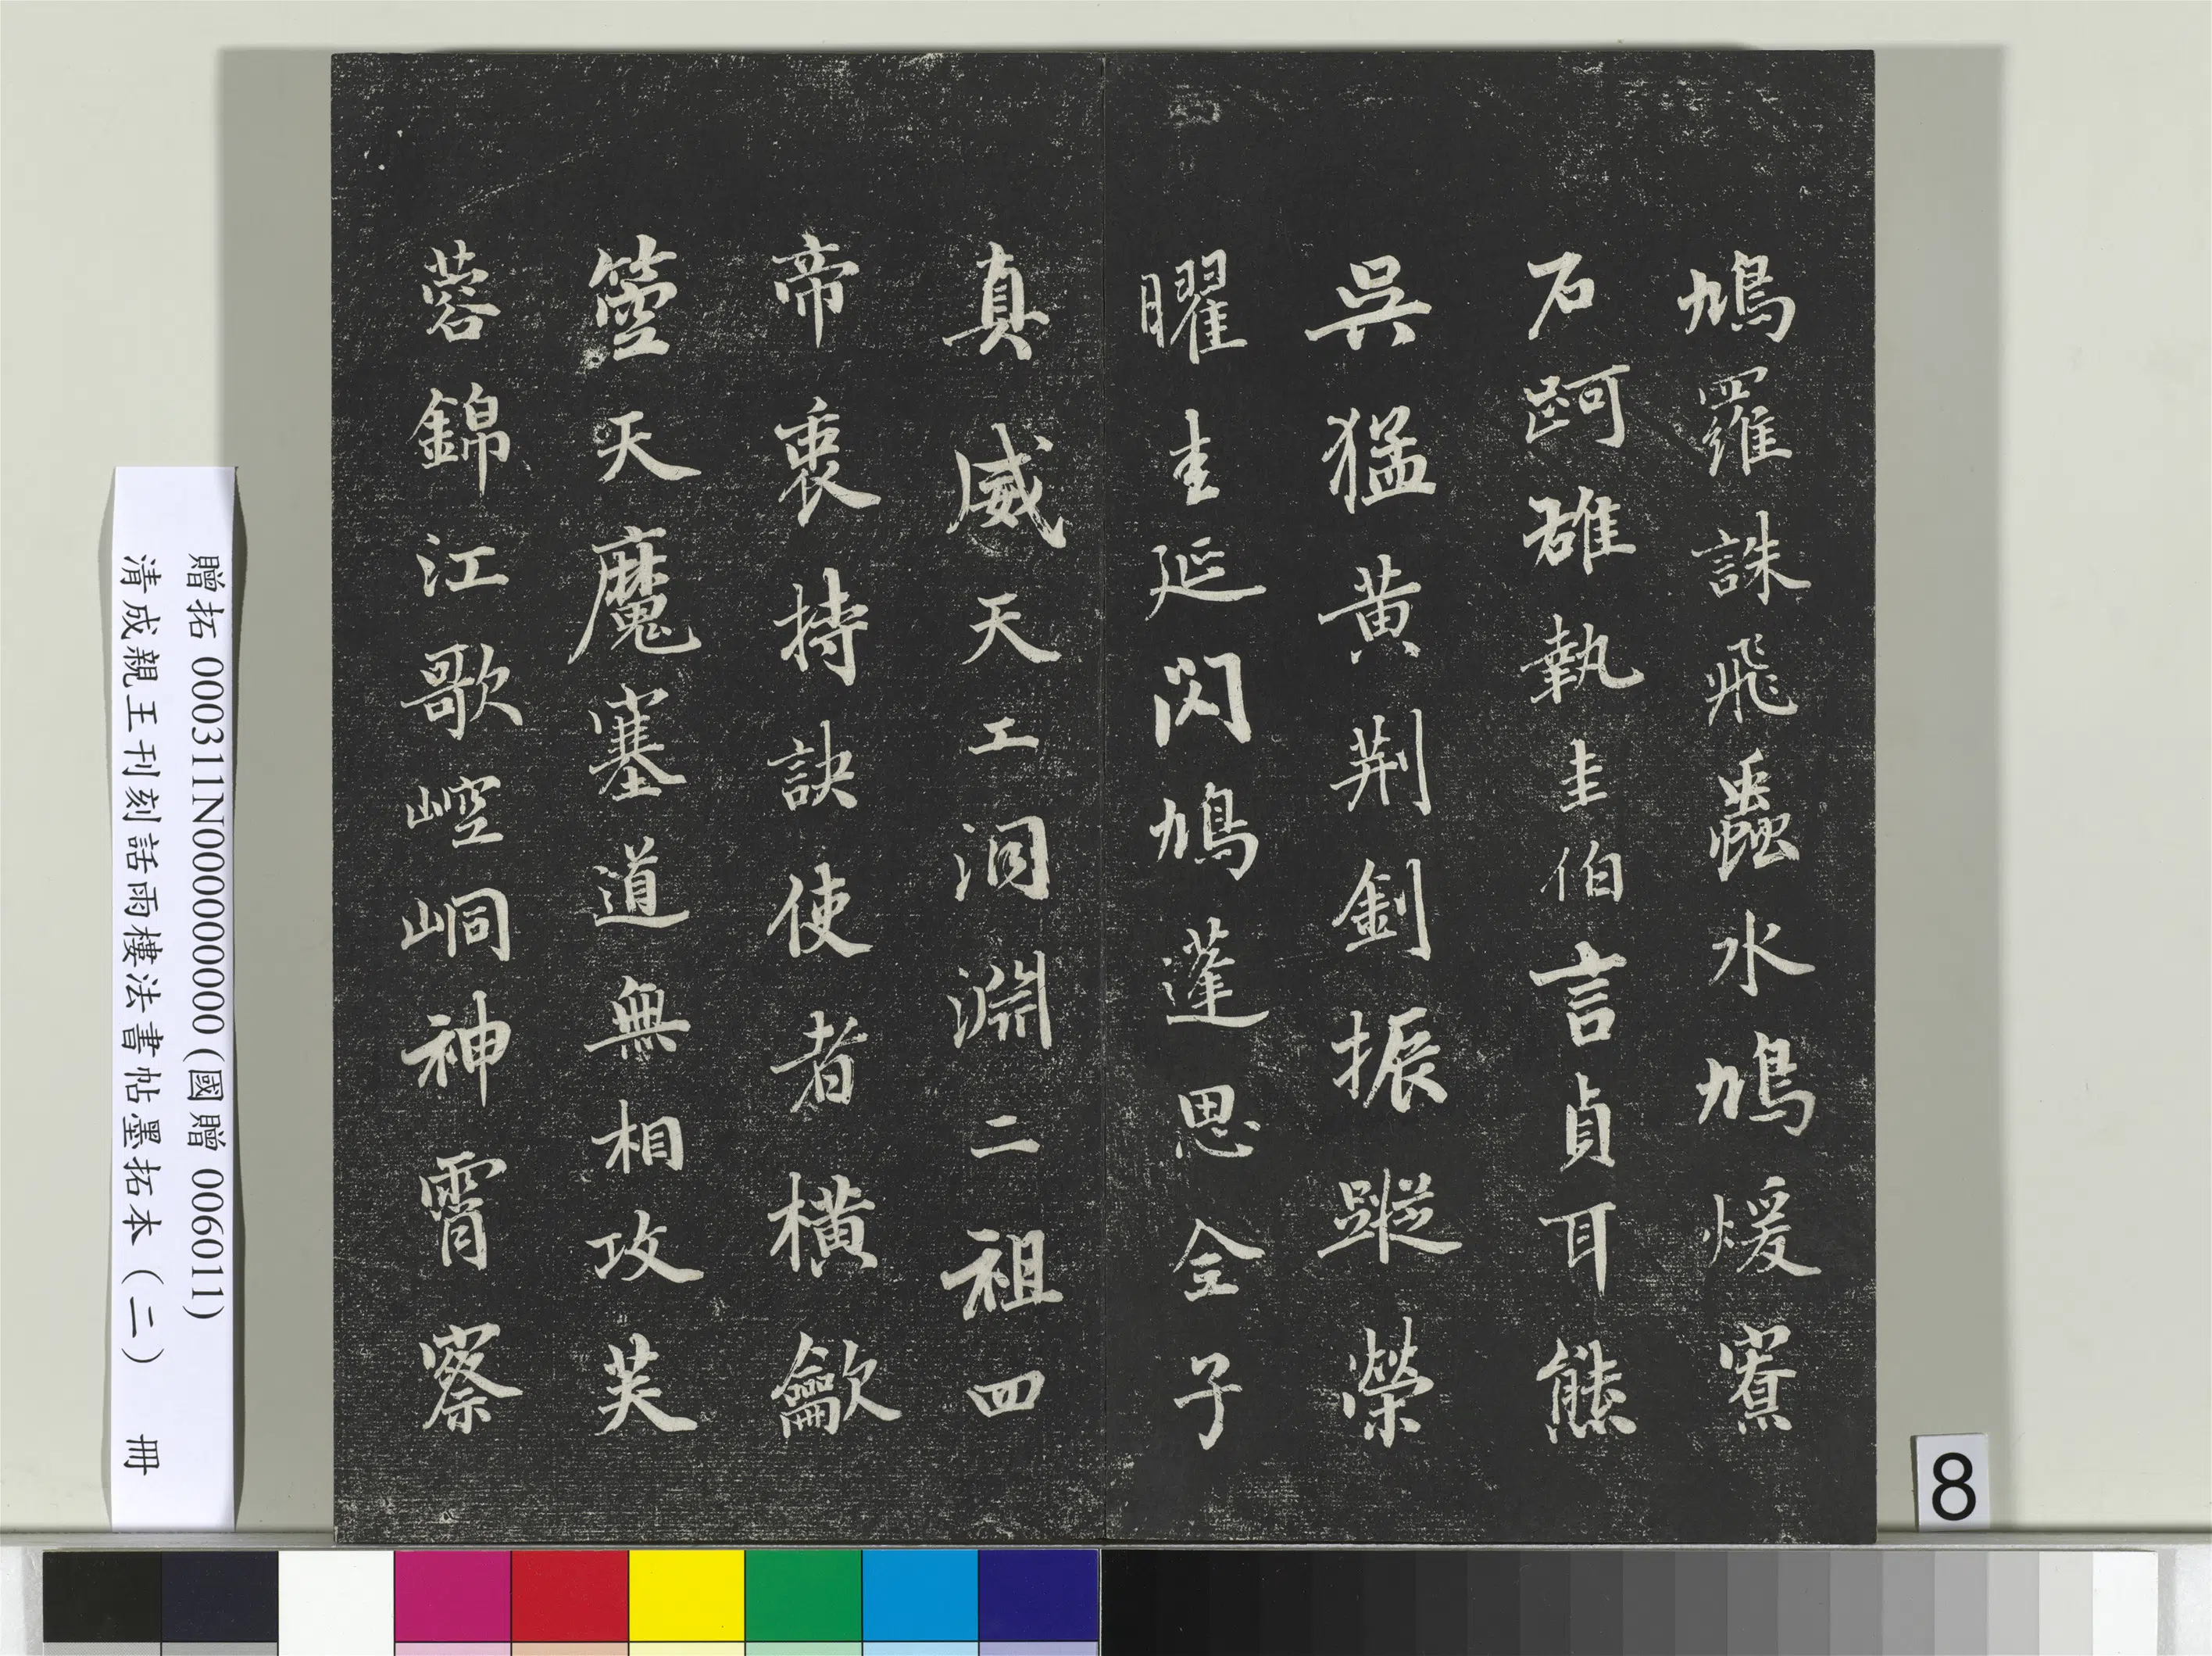 鳩羅誅飛蠱水鳩煖寮
石訶雄執圭伯言貞耳熊
吳猛黄荆釗振蹤榮
曜主延閃鳩蓬思全子
真威天工洞淵二祖四
帝衷持訣使者橫歙
箜天魔塞道無相攻芙
蓉錦江歌崆峒神霄察
贈拓 000311N000000000 (國贈 006011)
清成親王刊刻話雨樓法書帖墨拓本（二） 冊
8